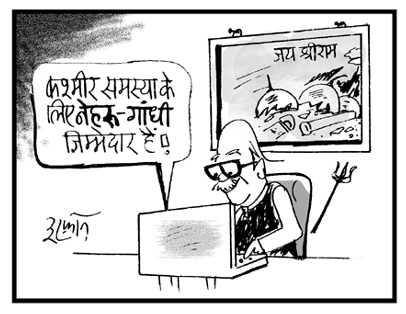 जय श्रीराम
कश्मीर समस्या के
लिए नेहरू-गांधी
जिम्मदार हैं!
इरफ़ान